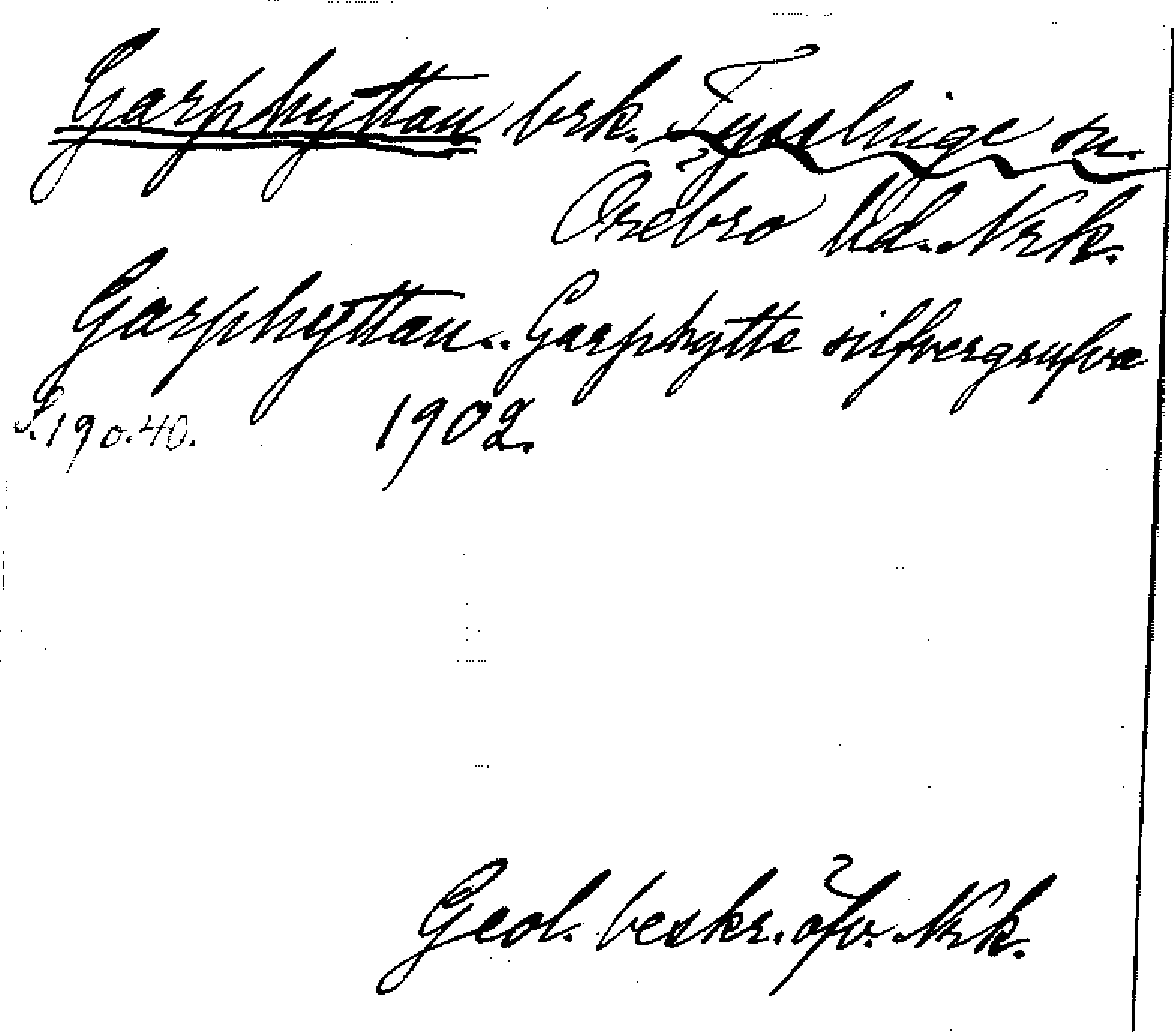 Garphyttan brk. Tysslinge sn.
Örebro hd. Nrk.
Garphyttan.. Garphytte silfvergrufva
S. 190.40. 1902.
Geol. beskr. öfv. Nrk.